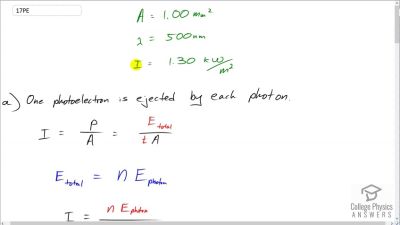 17PE
A = 1.00 mm²
λ = 500 nm
I = 1.30 kW/m²
a) One photoelectron is ejected by each photon.
I = P/A = E_total/tA
E_total = n E_photon
I = n E_photon
College Physics
ANSWERS